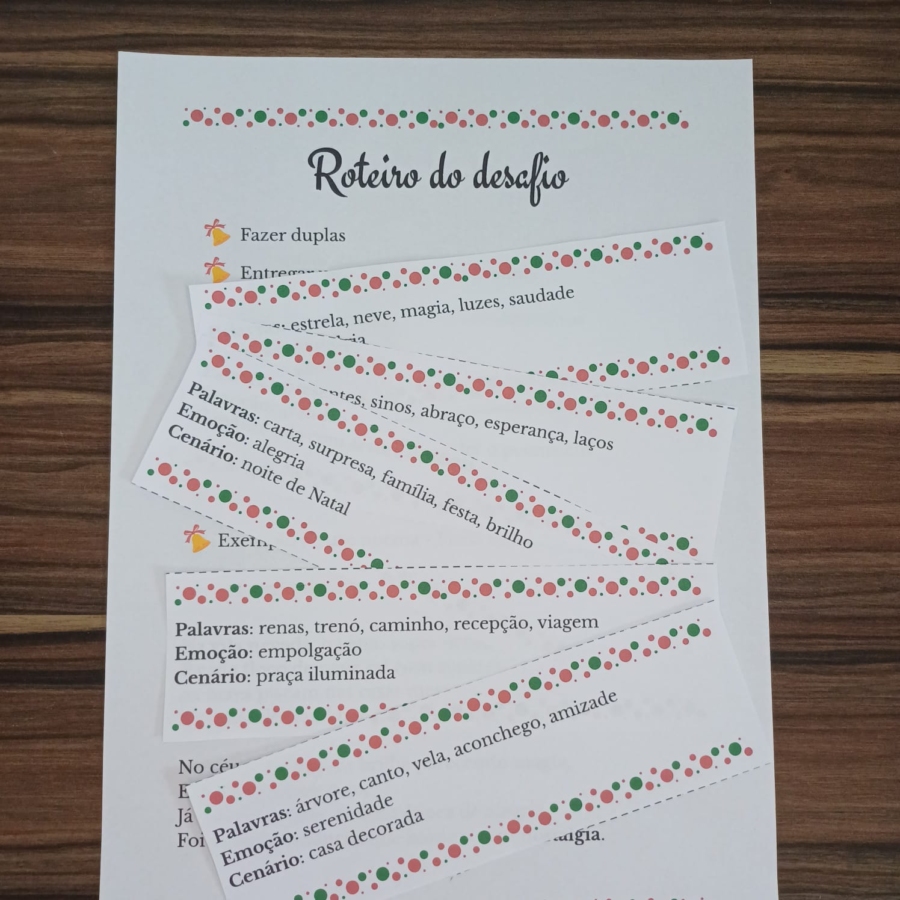 Roteiro do desafio
Fazer duplas
estrela, neve, magia, luzes, saudade
sinos, abraço, esperança, laços
Palavras: carta, surpresa, família, festa, brilho
Emoção: alegria
Cenário: noite de Natal
Palavras: renas, trenó, caminho, recepção, viagem
Emoção: empolgação
Cenário: praça iluminada
No céu
Já
Palavras: árvore, canto, vela, aconchego, amizade
Emoção: serenidade
Cenário: casa decorada